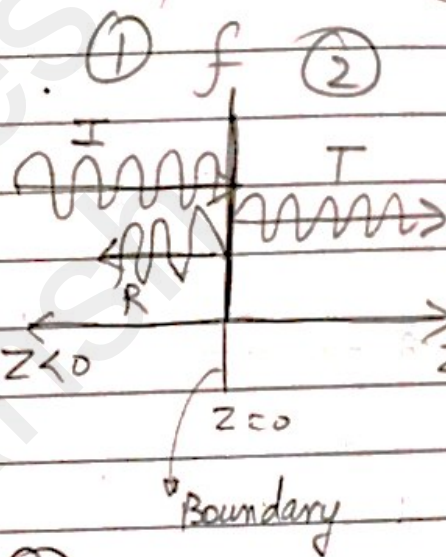 ① f ②
I T
R
Z<0
Z=0
Boundary